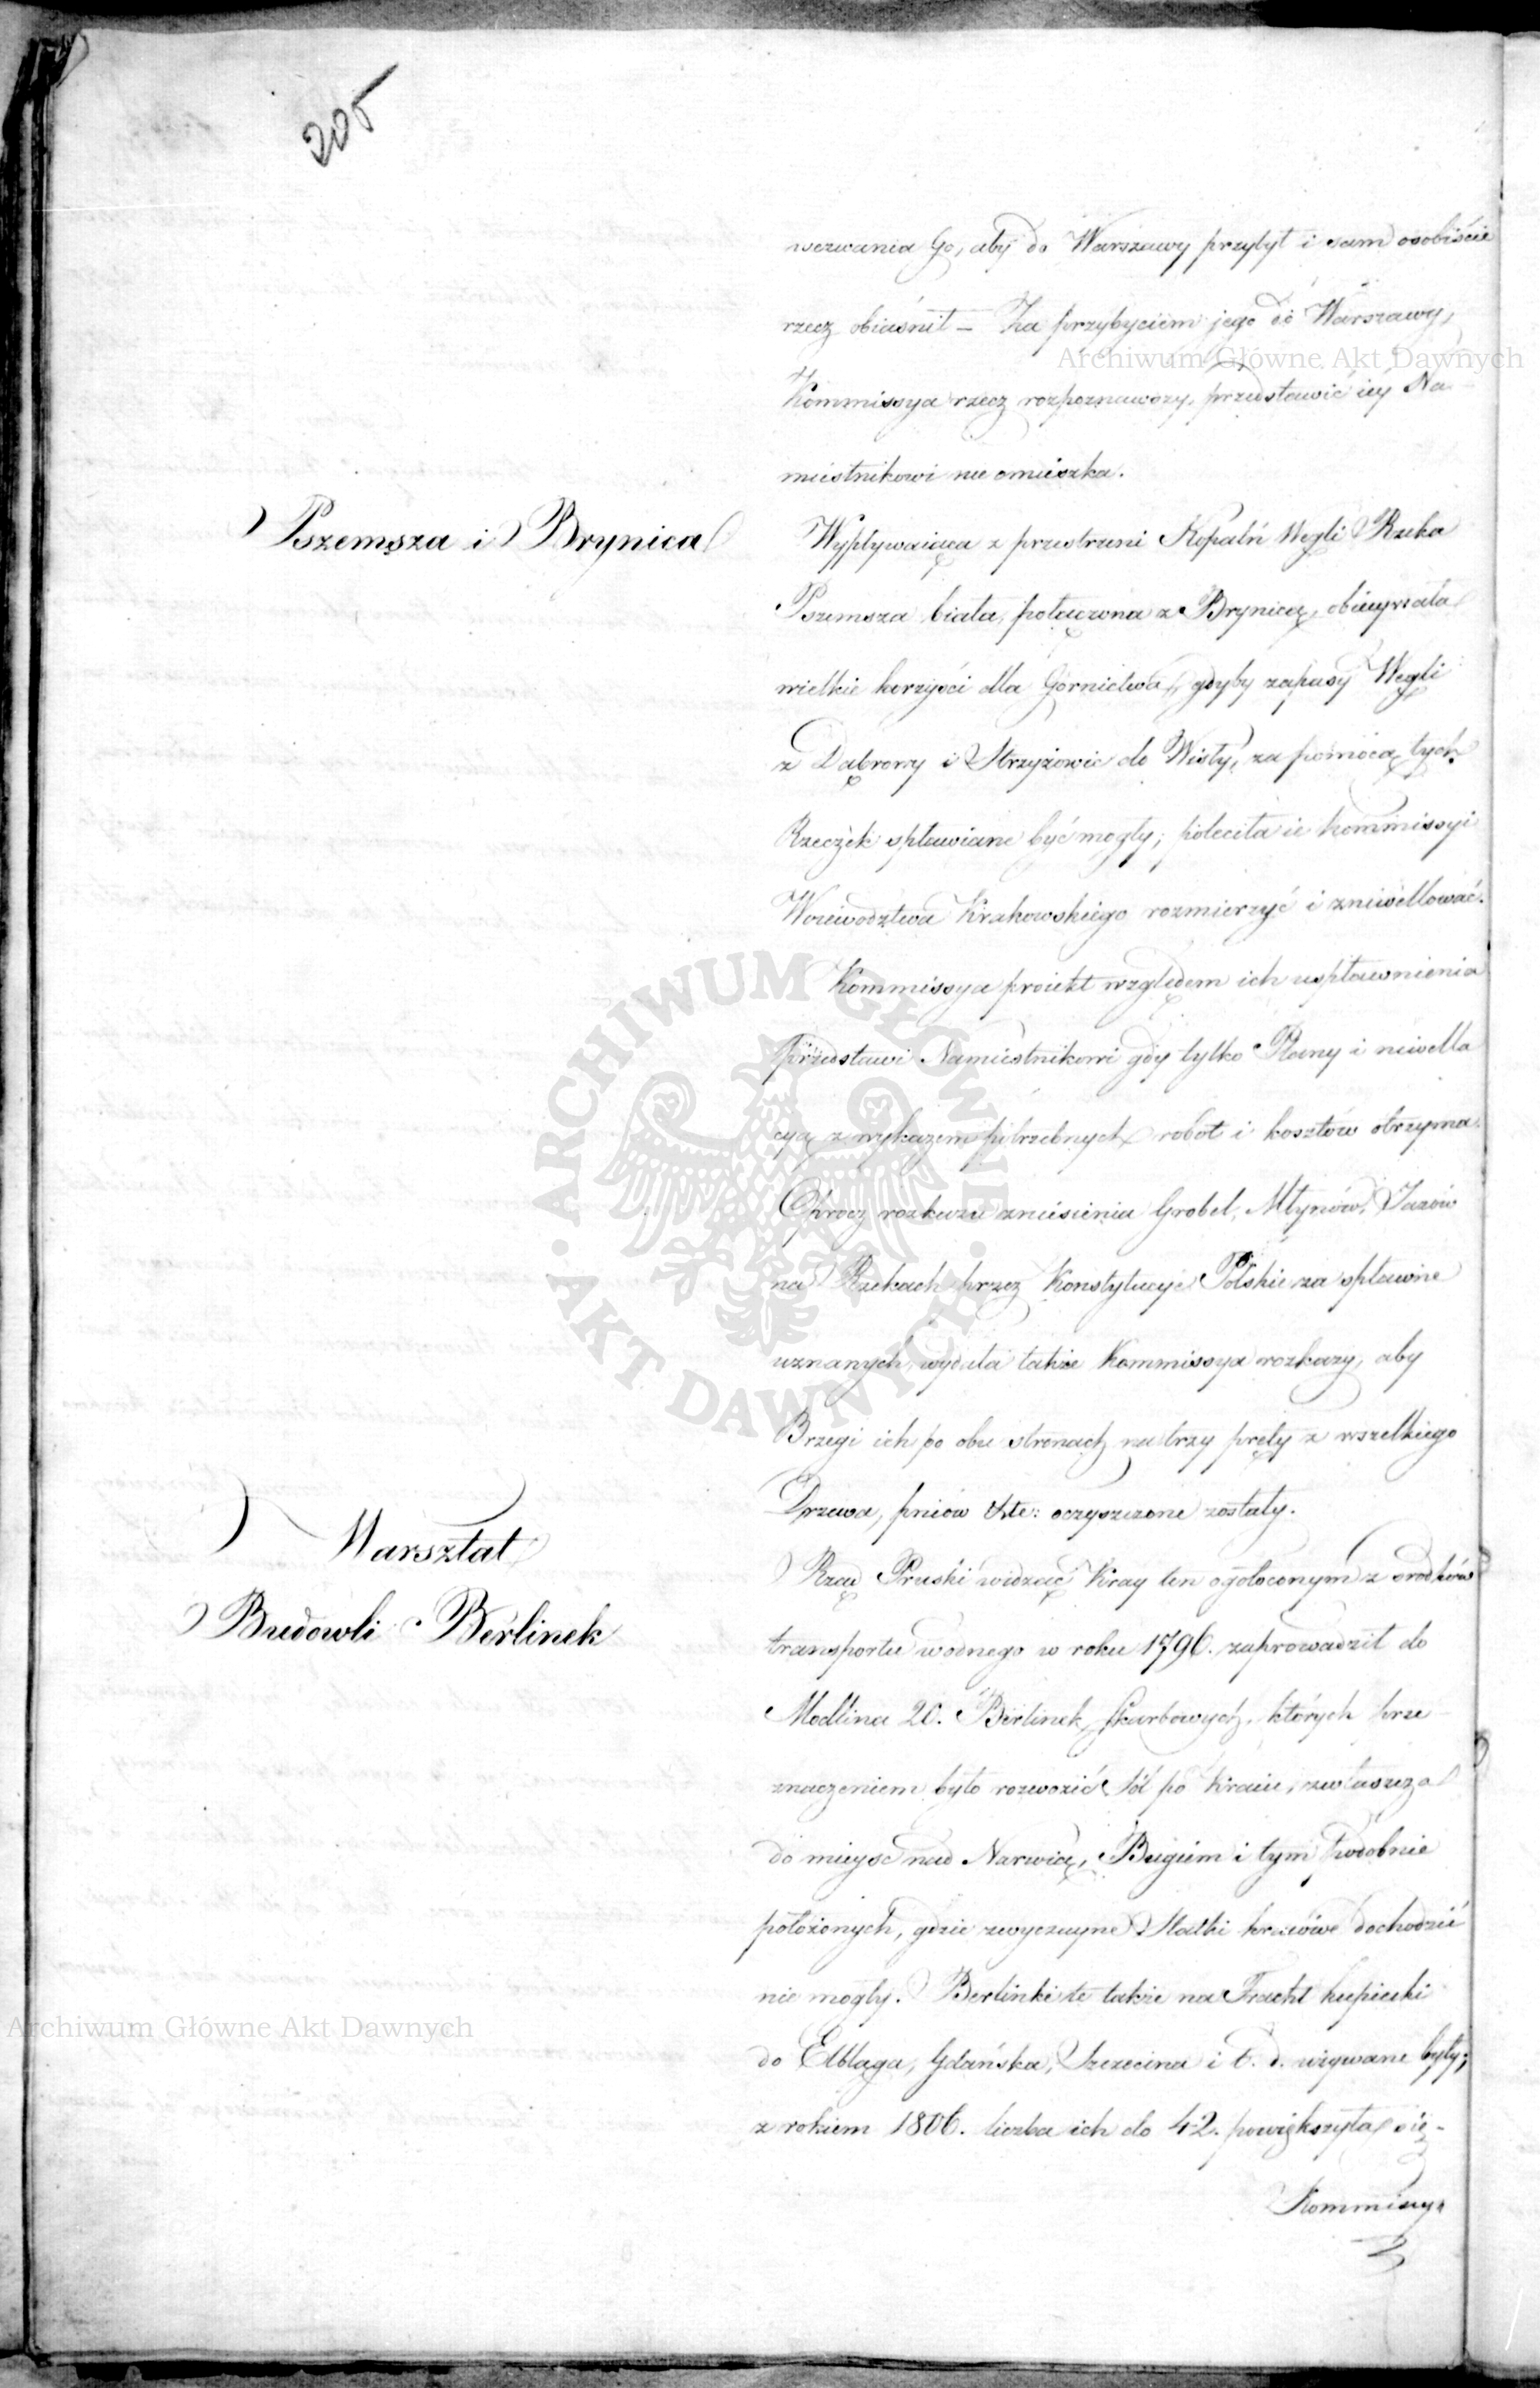 205
wezwania Go, aby do Warszawy przybył i sam osobiście
rzecz obiaśnił – Za przybyciem jego do Warszawy,
Kommissya rzecz rozpoznawszy, przedstawić iéy Na-
miestnikowi nie omieszka.
Pszemsza i Brynica
Wypływaiąca z przestrzeni Kopalń Węgli Rzeka
Pszemsza biała, połączona z Brynicą, obiecywała
wielkie korzyści dla Górnictwa, gdyby zapasy Węgli
z Dąbrowy i Strzyżowic do Wisły, za pomocą tych
Rzeczek spławiane być mogły; poleciła ie Kommissyi
Woiewodztwa Krakowskiego rozmierzyć i zniwellować.
Kommissya proiekt względem ich uspławnienia
przedstawi Namiestnikowi gdy tylko Plany i niwella
cyą z wykazem potrzebnych robot i kosztów otrzyma.
Oprocz rozkazu zniesienia Grobel, Młynów, Jazów
na Rzekach przez Konstytucye Polskie za spławne
uznanych, wydała także Kommissya rozkazy, aby
Brzegi ich po obu stronach na trzy pręty z wszelkiego
Drzewa, pniów &te: oczyszczone zostały.
Warsztat
Budowli Berlinek
Rząd Pruski widząc Kray ten ogołoconym z srodków
transportu wodnego w roku 1796. zaprowadził do
Modlina 20. Berlinek skarbowych, których prze-
znaczeniem było rozwozić sól po Kraiu, zwłaszcza
do mieysc nad Narwią, Bugiem i tym podobnie
położonych, gdzie zwyczayne Statki kraiowe dochodzić
nie mogły. Berlinki te także na Fracht kupiecki
do Elbląga, Gdańska, Szczecina i t. d. używane były;
z rokiem 1806. liczba ich do 42. powiększyła się.-
Kommissya